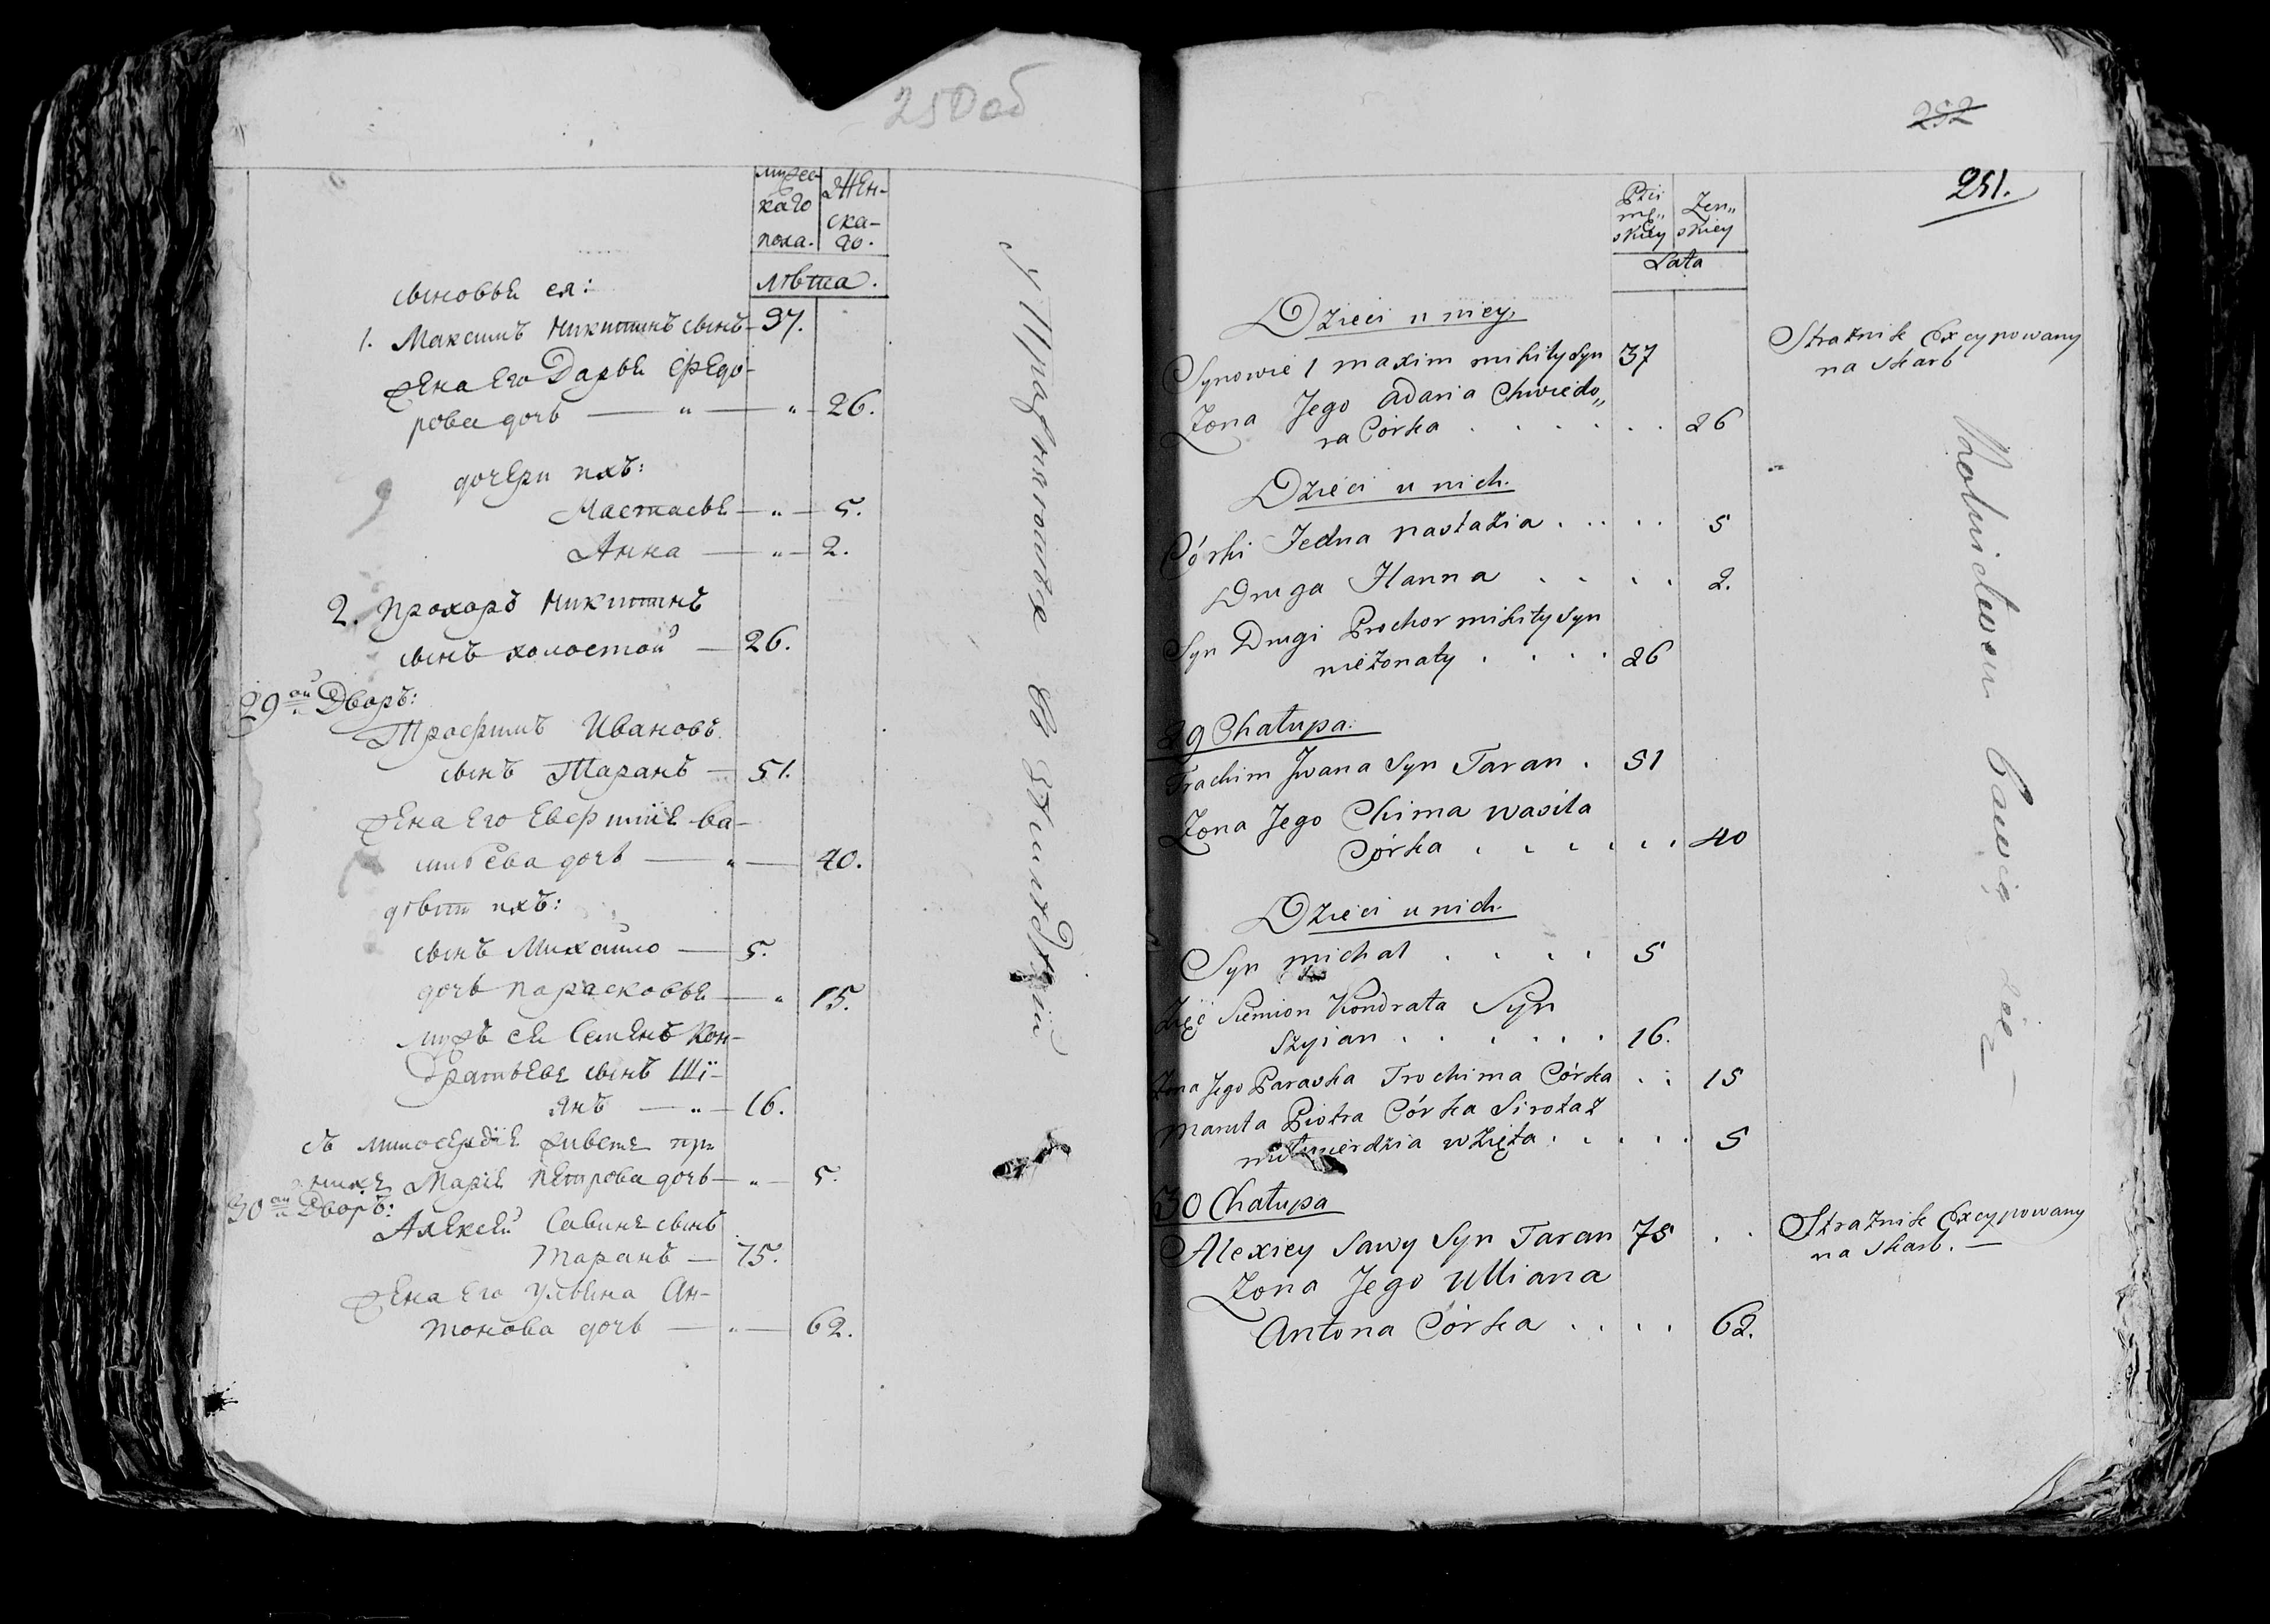 250об
мужес-
каго
пола.
Жен-
ска-
го.
лѣта.
сыновья ея:
1. Максимъ Никитинъ сынъ 37.
жена его Дарья Федо-
рова дочь — " — " — 26.
дочери ихъ:
Настасья — " — 5.
Анна — " — 2.
2. Прохоръ Никитинъ
сынъ холостой — 26.
29ой Дворъ:
Трофимъ Ивановъ
сынъ Таранъ — 51.
жена его Евфимія Ва-
сильева дочь — " — 40.
дѣти ихъ:
сынъ Михайло — 5.
дочь Парасковья — " 15.
мужъ ея Семенъ Кон-
дратьевъ сынъ Шї-
янъ — " — 16.
Марія Петрова дочь — " — 5.
30ой Дворъ:
Алексей Савинъ сынъ
Таранъ — 75.
жена его Ульяна Ан-
тонова дочь — " — 62.
252
251.
Płci
mę„
skiey
Żen„
skiey
Lata
Dzieci u niey
Synowie 1 maxim mikity Syn 37
Strażnik Excypowany
na skarb
Żona Jego adaria Chwiedo„
ra Córka . . . . . . 26
Dzieci u nich.
Córki Jedna nastazia . . . . . 5
Druga Hanna . . . . 2.
Syn Drugi Prochor mikity Syn
nieżonaty . . . . 26
29 Chałupa.
Trachim Jwana Syn Taran . 51
Żona Jego Chima wasila
Córka . . . . . . 40
Dzieci u nich.
Syn michał . . . . 5
Zięć Siemion Kondrata Syn
Szyian . . . . . . 16.
Żona Jego Paraska Trochima Córka . . 15
Maruta Piotra Córka Sirota z
miłosierdzia wzięta . . . . . 5
30 Chałupa
Alexiey Sawy Syn Taran 75 . .
Strażnik Excypowany
na skarb. —
Żona Jego Ulliana
Antona Córka . . . . 62.